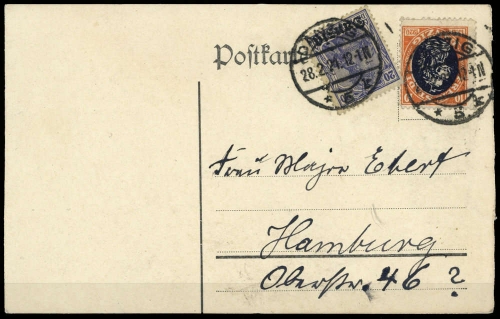 Postkarte
DANZIG
28.2.21.12-1N
* 5 k
Frau Major Ebert
Hamburg
Oberstr. 46 ?